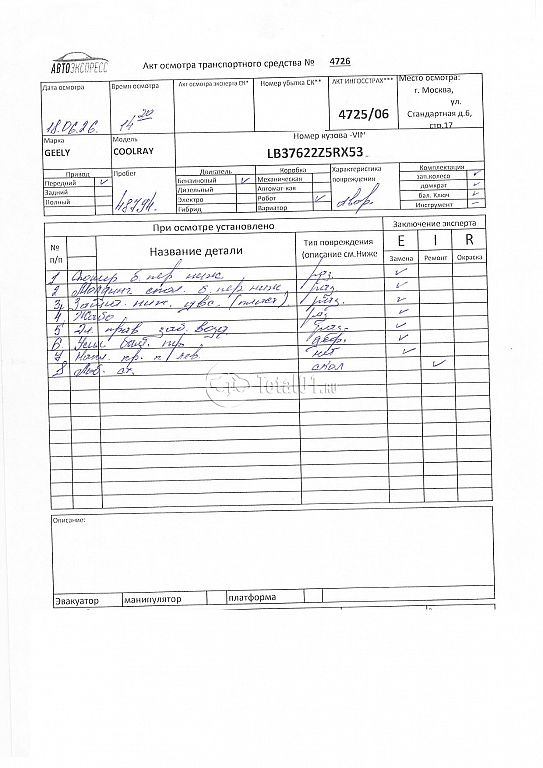 АВТОЭКСПРЕСС
Акт осмотра транспортного средства № 4726
Дата осмотра
18.06.26.
Время осмотра
14 20
Акт осмотра эксперта СК*
Номер убытка СК**
АКТ ИНГОССТРАХ***
4725/06
Место осмотра:
г. Москва,
ул.
Стандартная д.6,
стр.17
Марка
GEELY
Модель
COOLRAY
Номер кузова -VIN
LB37622Z5RX53
Привод
Передний ✓
Задний
Полный
Пробег
48794.
Двигатель
Бензиновый ✓
Дизельный
Электро
Гибрид
Коробка
Механическая
Автомат-кая
Робот ✓
Вариатор
Характеристика
повреждений
Комплектация
зап.колесо ✓
домкрат -
бал. Ключ -
Инструмент -
При осмотре установлено
Заключение эксперта
№
п/п
Название детали
Тип повреждения
(описание см.Ниже
E I R
Замена Ремонт Окраска
1 Спойлер б. пер ниж. раз. ✓
2 б. пер ниж раз. ✓
3 ниж. (пласт) раз. ✓
4 Жабо рз ✓
5 прав возд раз. ✓
6 Усил бам. пер деф. ✓
7 пр. п/лев. ✓
8 Лоб. ст. скол ✓
Total01.ru
Описание:
Эвакуатор
манипулятор
платформа